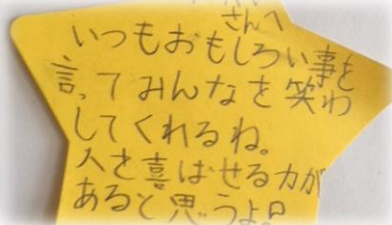 さんへ
いつもおもしろい事を
言ってみんなを笑わ
してくれるね。
人を喜ばせる力が
あると思うよ!